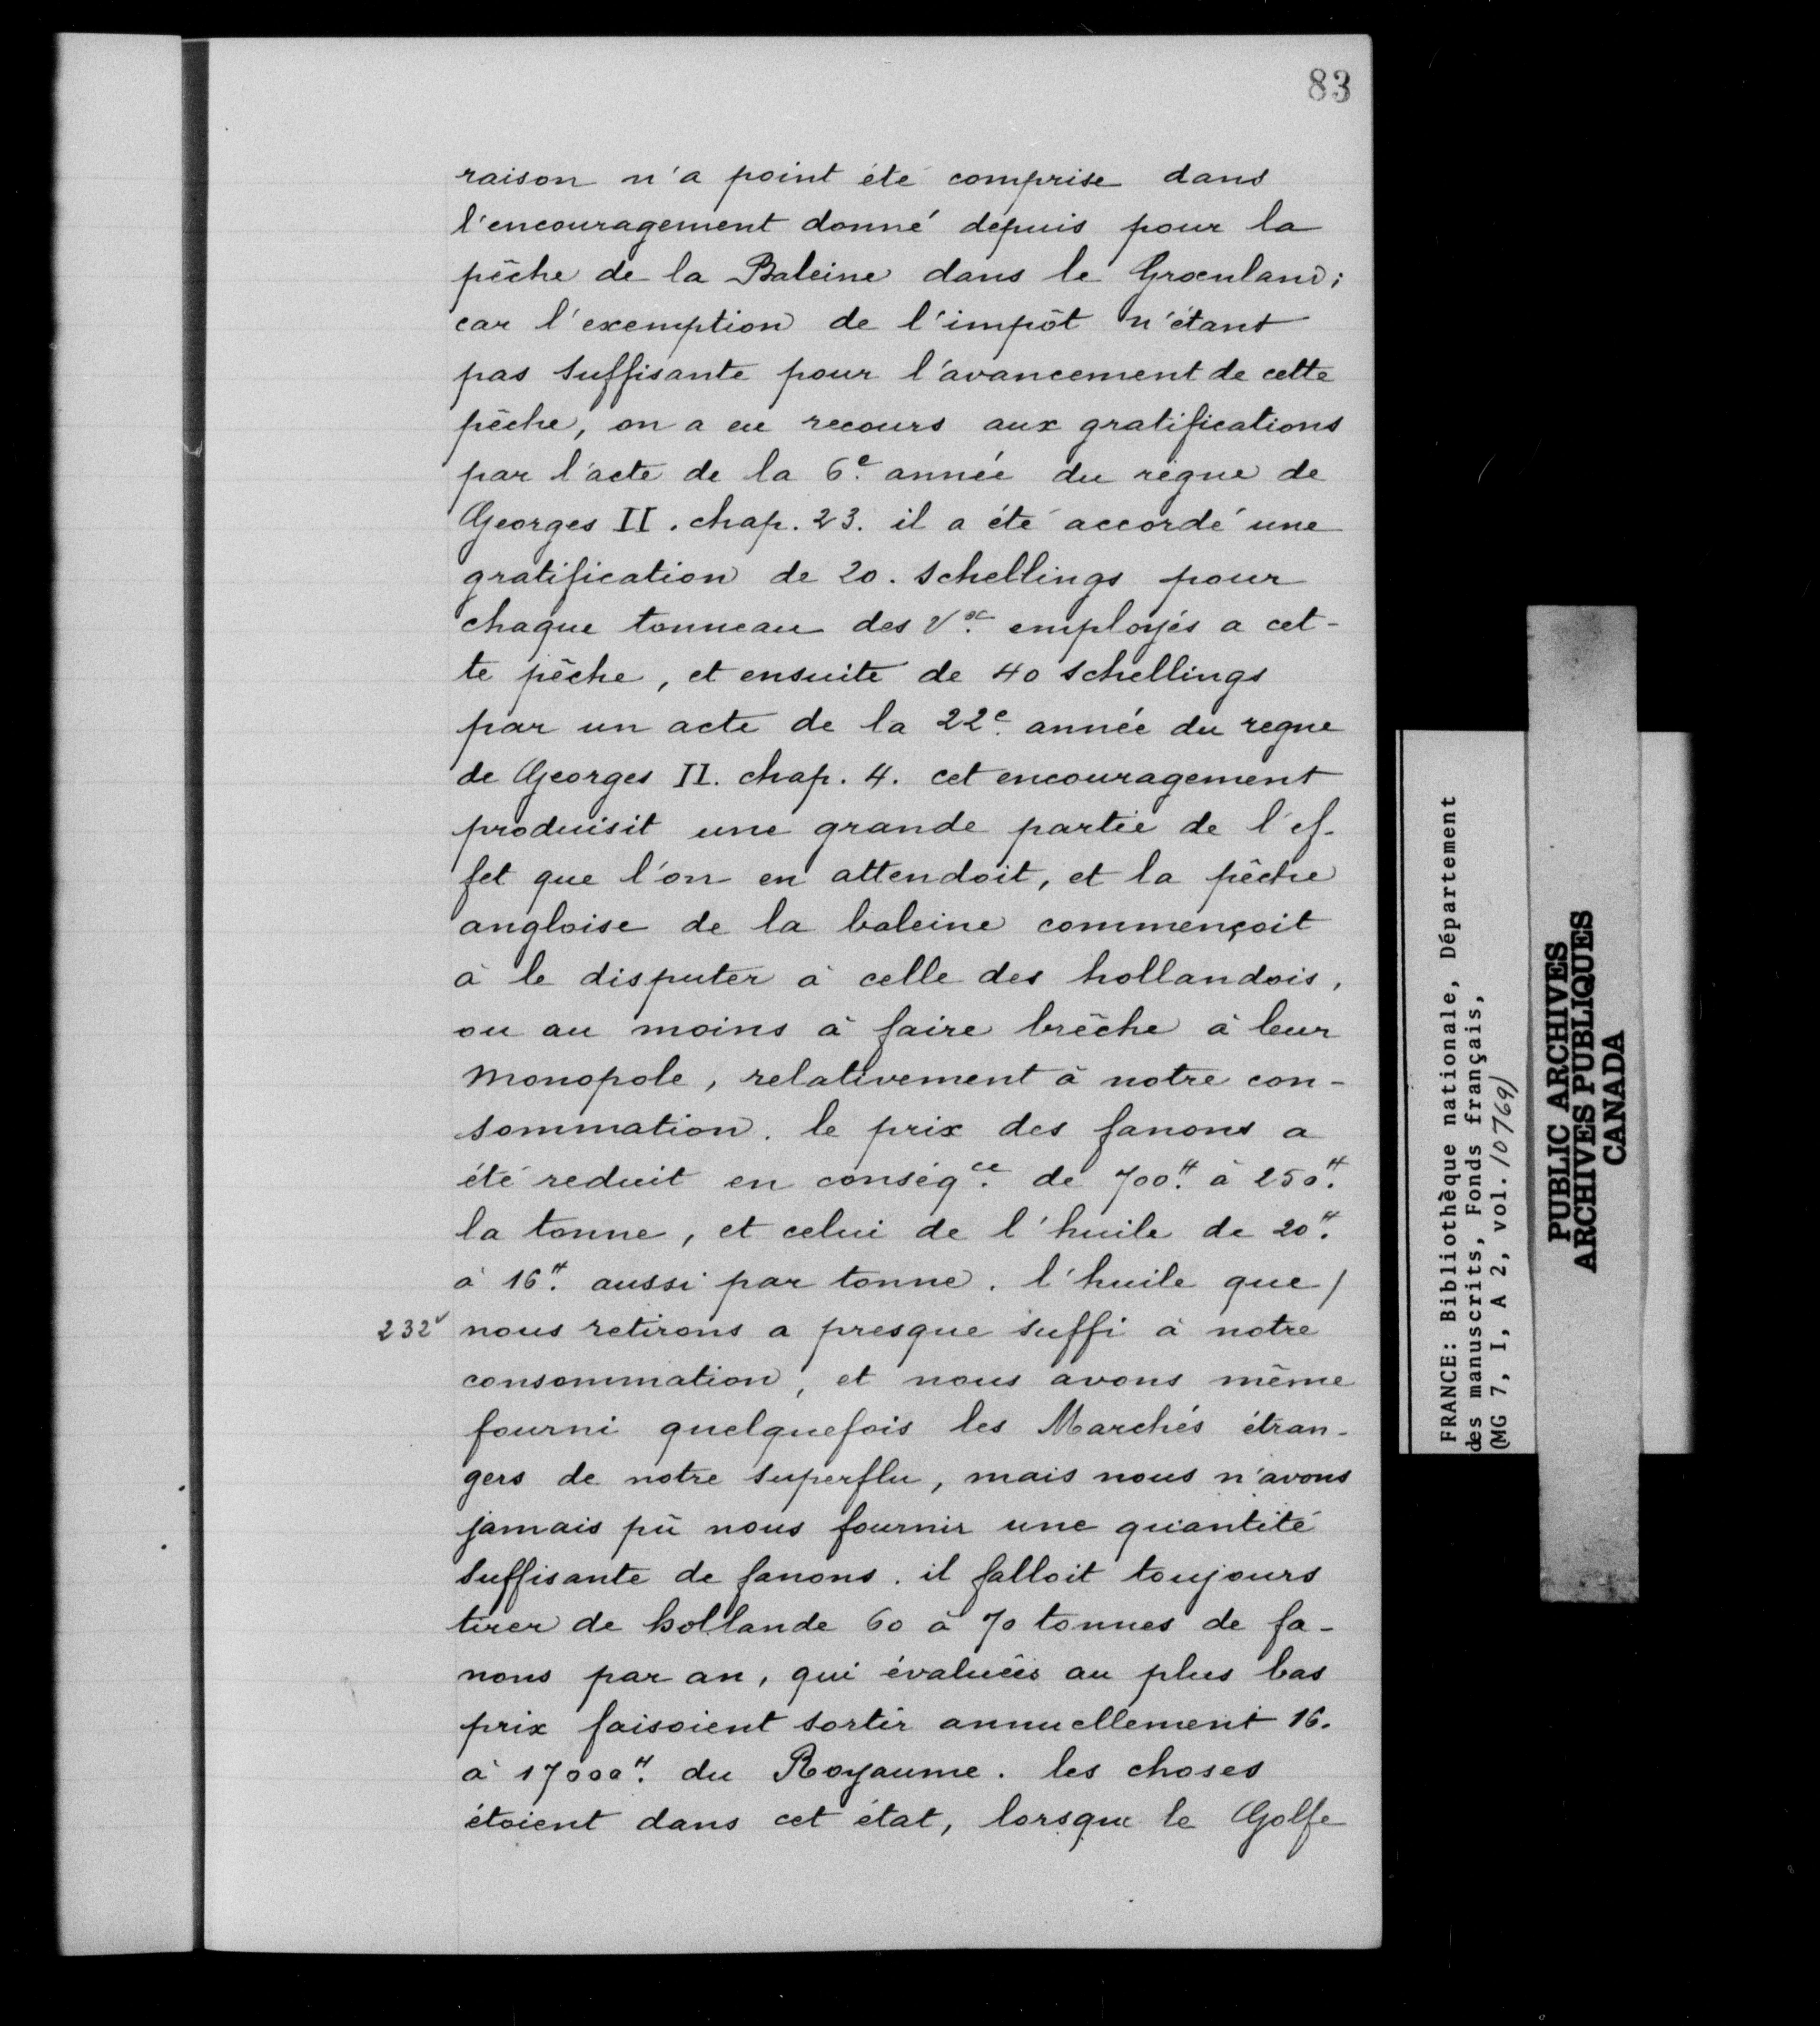 83
raison n'a point été comprise dans
l'encouragement donné depuis pour la
pêche de la Baleine dans le Grœnland;
car l'exemption de l'impôt n'étant
pas suffisante pour l'avancement de cette
pêche, on a eu recours aux gratifications
par l'acte de la 6e. année du règne de
Georges II. chap. 23. il a été accordé une
gratification de 20. schellings pour
chaque tonneau des Vx. employés a cet-
te pêche, et ensuite de 40 schellings
par un acte de la 22e. année du regne
de Georges II. chap. 4. cet encouragement
produisit une grande partie de l'ef-
fet que l'on en attendoit, et la pêche
angloise de la baleine commençoit
à le disputer à celle des hollandois,
ou au moins à faire brêche à leur
monopole, relativement à notre con-
sommation. le prix des fanons a
été reduit en conséqce. de 700₶. à 250₶.
la tonne, et celui de l'huile de 20₶.
à 16₶. aussi par tonne. l'huile que /
232v nous retirons a presque suffi à notre
consommation, et nous avons même
fourni quelquefois les Marchés étran-
gers de notre superflu, mais nous n'avons
jamais pû nous fournir une quantité
suffisante de fanons. il falloit toujours
tirer de hollande 60 à 70 tonnes de fa-
nons par an, qui évaluées au plus bas
prix faisoient sortir annuellement 16.
à 17000₶. du Royaume. les choses
étoient dans cet état, lorsque le Golfe
FRANCE: Bibliothèque nationale, Département
des manuscrits, Fonds français,
(MG 7, I, A 2, vol. 10769)
PUBLIC ARCHIVES
ARCHIVES PUBLIQUES
CANADA